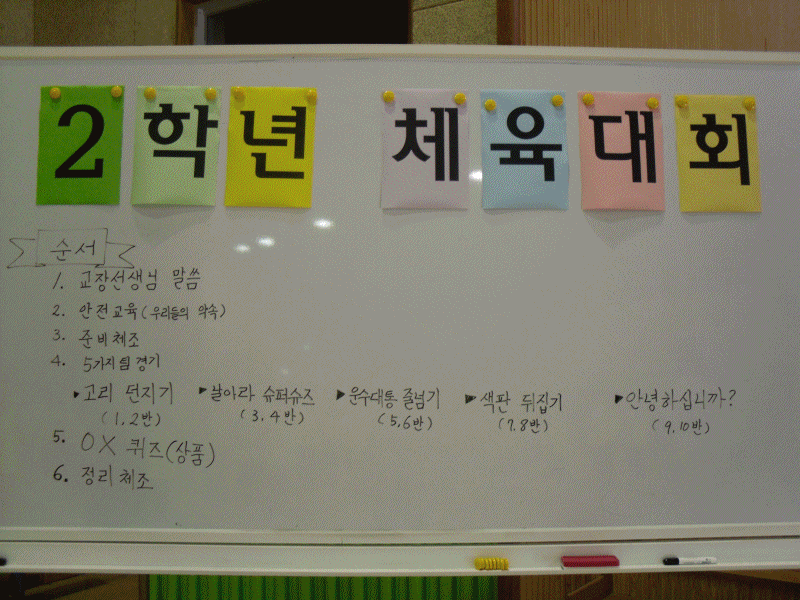 2학년 체육대회
순서
1. 교장선생님 말씀
2. 안전교육(우리들의 약속)
3. 준비체조
4. 5가지 팀 경기
▶고리 던지기 ▶날아라 슈퍼슈즈 ▶운수대통 줄넘기 ▶색판 뒤집기 ▶안녕하십니까?
(1,2반) (3,4반) (5,6반) (7,8반) (9,10반)
5. OX 퀴즈(상품)
6. 정리체조